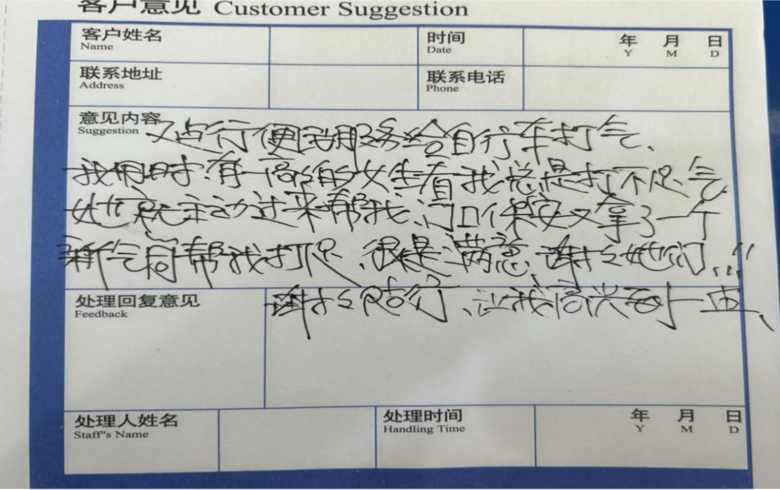 客户意见 Customer Suggestion
客户姓名 Name 时间 Date 年 Y 月 M 日 D
联系地址 Address 联系电话 Phone
意见内容 Suggestion
行便民服务给自行车打气、
我用时有一高个的女生看我总是打不足气
她就主动过来帮我、门口保安又拿了一个
新气筒帮我打足、很是满意、谢谢她们..!!
处理回复意见 Feedback
谢谢行、让我高兴每一
处理人姓名 Staff"s Name 处理时间 Handling Time 年 Y 月 M 日 D